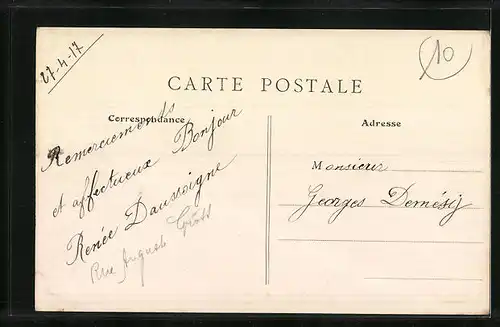 27-4-17
10
CARTE POSTALE
Correspondance
Adresse
Remerciements
et affectueux Bonjour
Renée Daussoigne
Rue Auguste
Monsieur
Georges Demésy